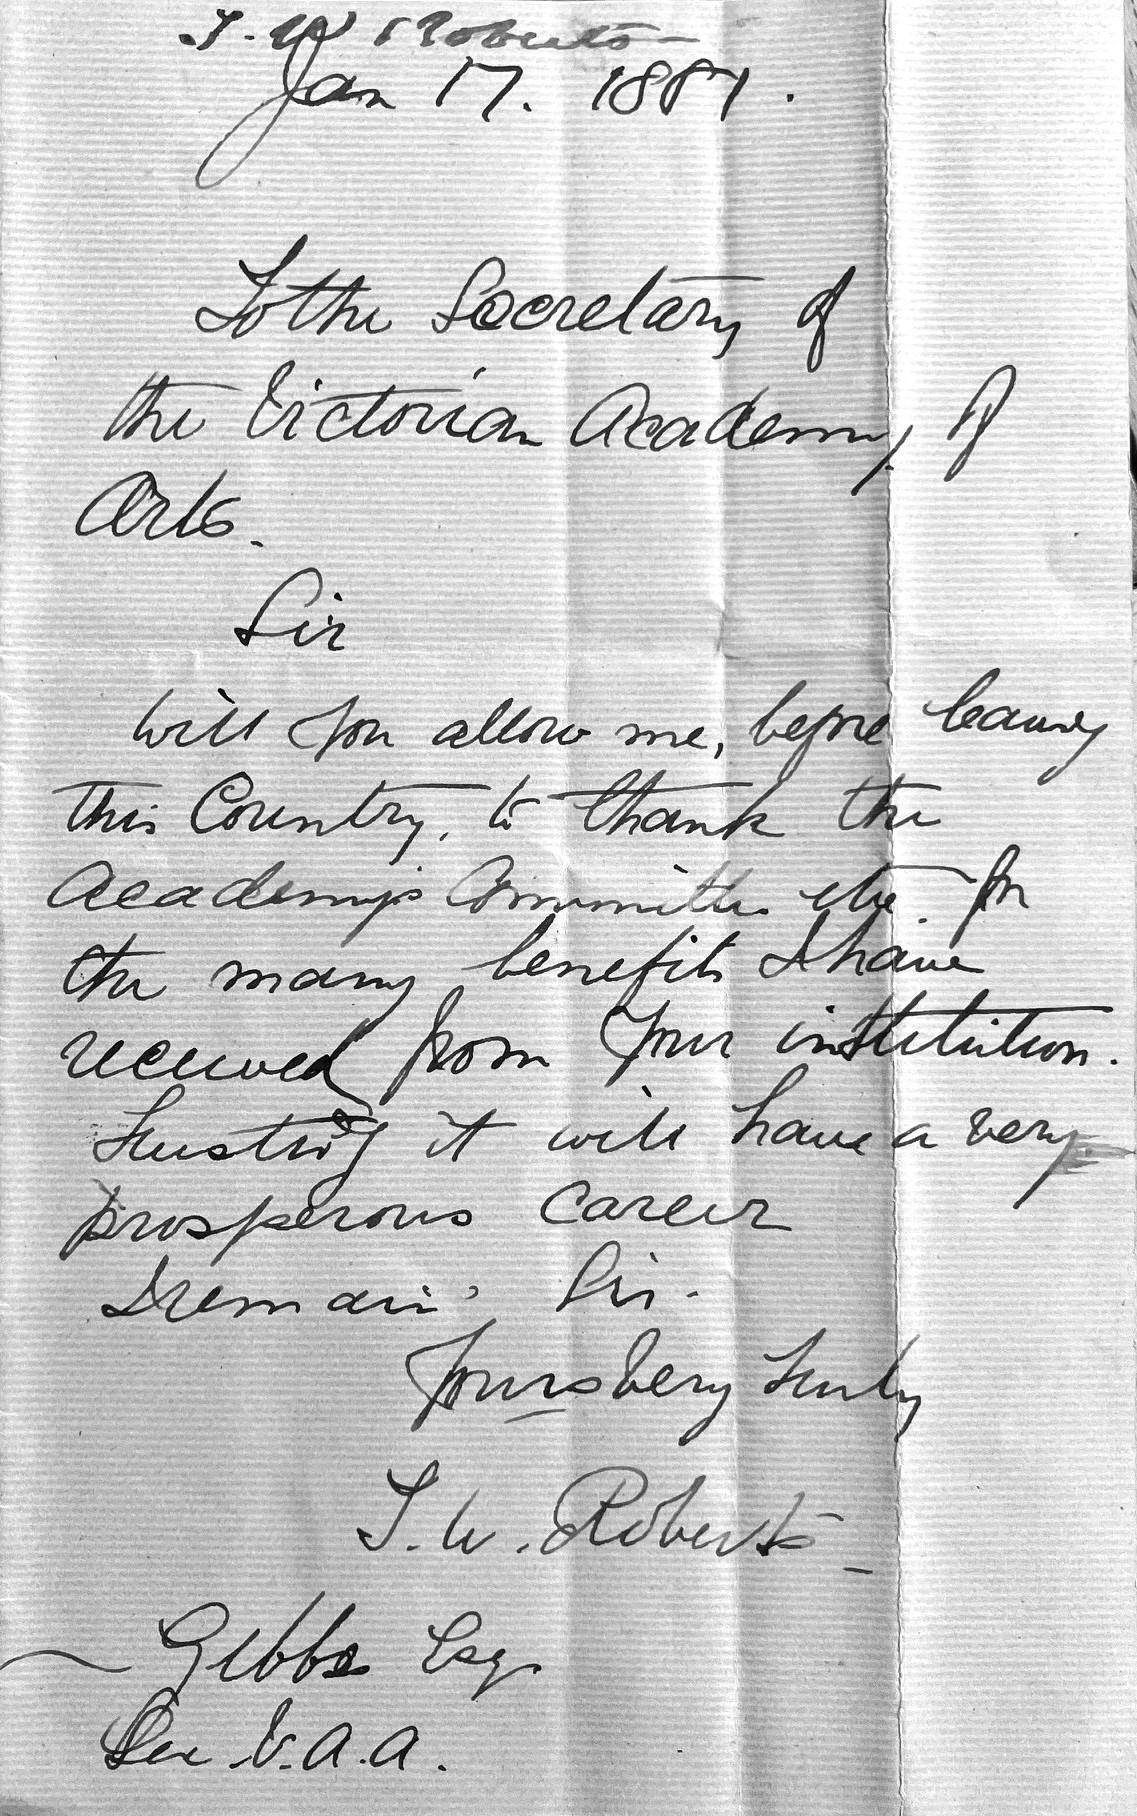 T. W Roberts
Jan 17. 1881.
To the Secretary of
the Victorian Academy of
Arts.
Sir
Will you allow me, before leaving
this Country, to thank the
Academy's Committee etc. for
the many benefits I have
received from your institution.
Trusting it will have a very
prosperous career
I remain Sir.
Yours very truly
T. W. Roberts
— Gibbs Esq
Sec V.A.A.